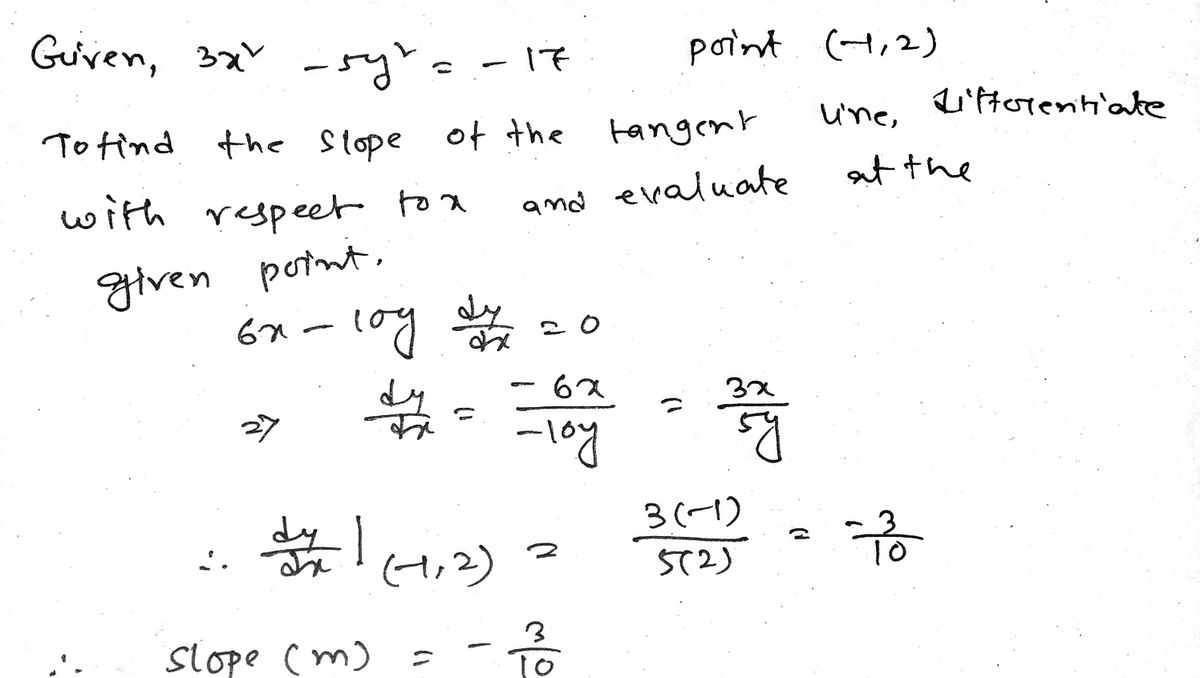 Given, 3x² - 5y² = - 17 point (-1, 2)
To find the slope of the tangent line, differentiate
with respect to x and evaluate at the
given point.
6x - 10y dy/dx = 0
⇒ dy/dx = - 6x / -10y = 3x / 5y
∴ dy/dx | (-1, 2) = 3(-1) / 5(2) = -3 / 10
∴ slope (m) = - 3/10